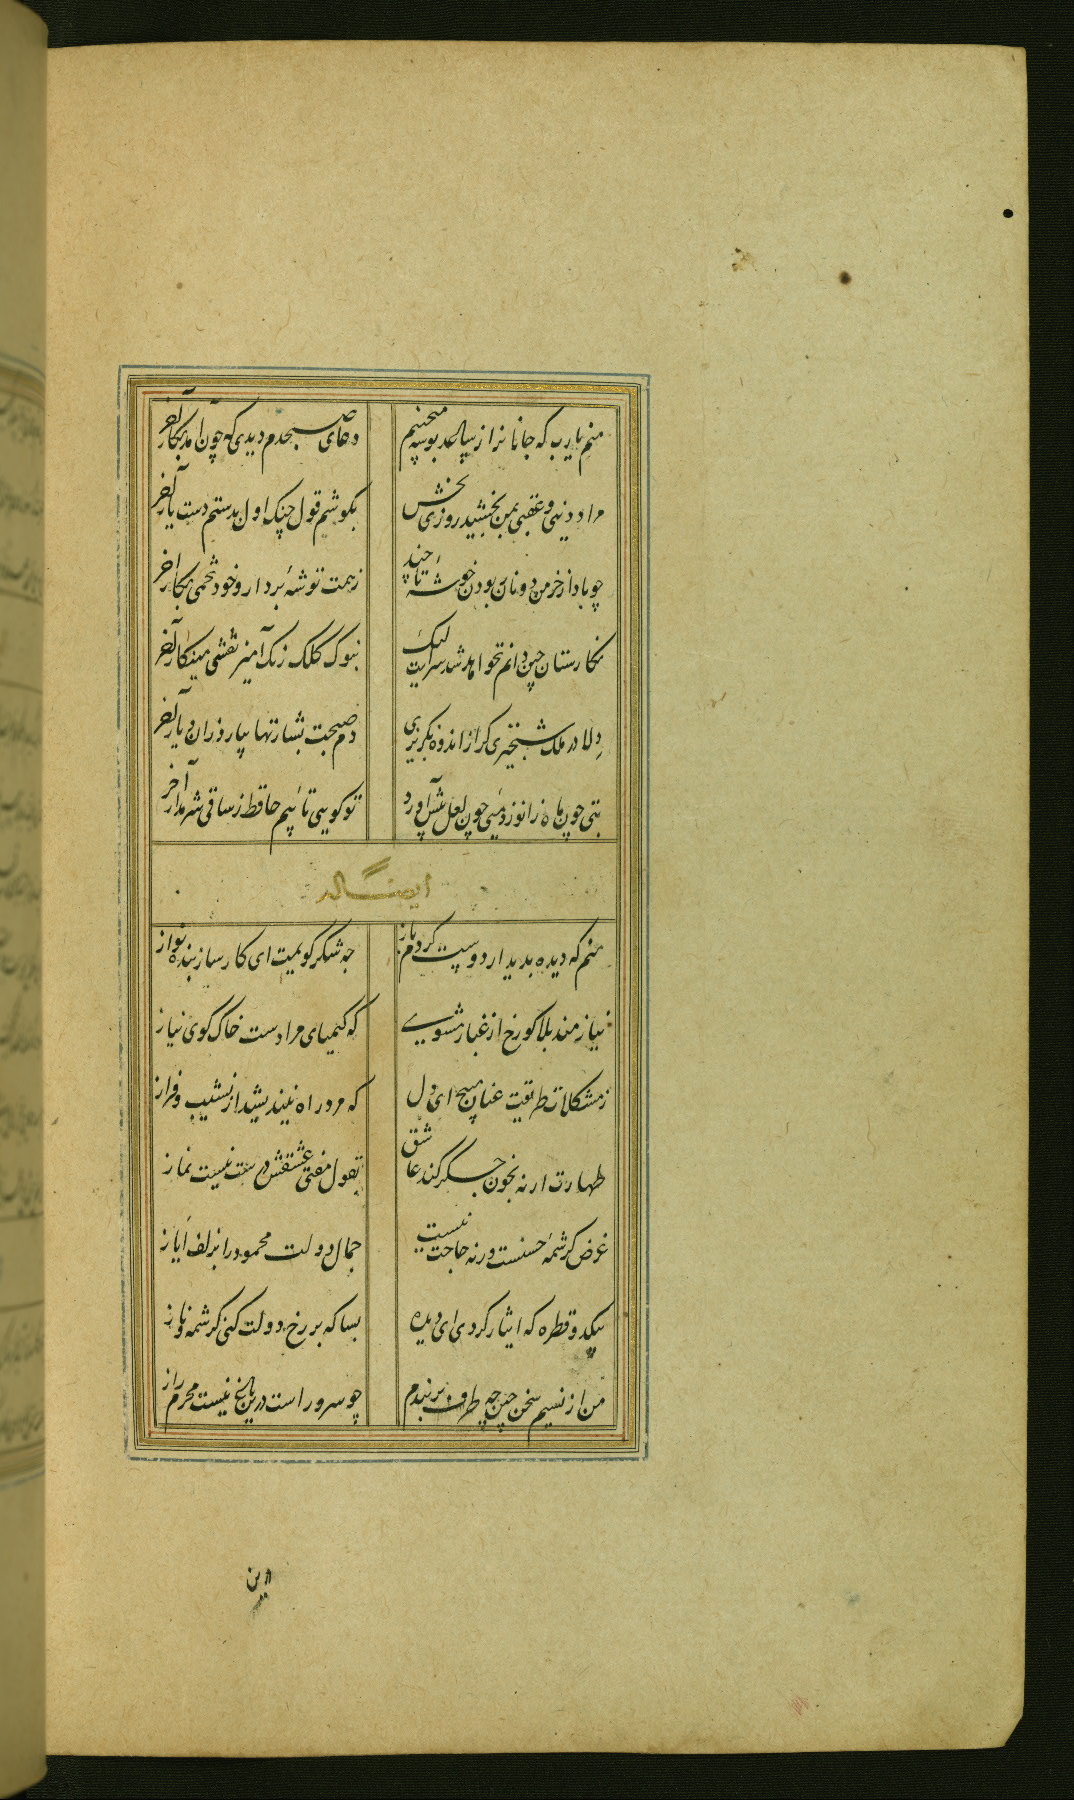 منم یارب که جانانرا ز می‌چینم دعای صبحدم دیدی که چون آمد بکار آخر
مراد دنیی و عقبی بمن بخشید روزی بخش بگوشم قول چنک اول بدستم دست یار آخر
چو باد از خرمن دونان بودن خوشهٔ تا چند ز همت توشهٔ بردار و خود تخمی بکار آخر
نکارستان چین دانم نخواهد شد سرایت لیک بنوک کلک رنک آمیز نقشی مینکار آخر
دلا در ملک شبخیزی کر از اندوه نکریزی دم صبحت بشارتها بیارد زان دیار آخر
بتی چون ماه زانو زد میی چون لعل پیش آورد تو کویی تائبم حافظ ز ساقی شرم دار آخر
ایضا له
منم که دیده بدیدار دوست کردم باز چه شکر کویمت ای کارساز بنده نواز
نیازمند بلا کو رخ از غبار مشوی که کیمیای مرادست خاک کوی نیاز
ز مشکلات طریقت عنان مپیچ ای دل که مرد راه نیندیشد از نشیب و فراز
طهارت ار نه بخون جکر کند عاشق بقول مفتی عشقش درست نیست نماز
غرض کرشمهٔ حسنست ورنه حاجت نیست جمال دولت محمود را بزلف ایاز
بیکدو قطره که ایثار کردی ای دیده بسا که بر رخ دولت کنی کرشمه و ناز
من از نسیم سخن چین چه طرف بربندم چو سرو راست درین باغ نیست محرم راز
درین